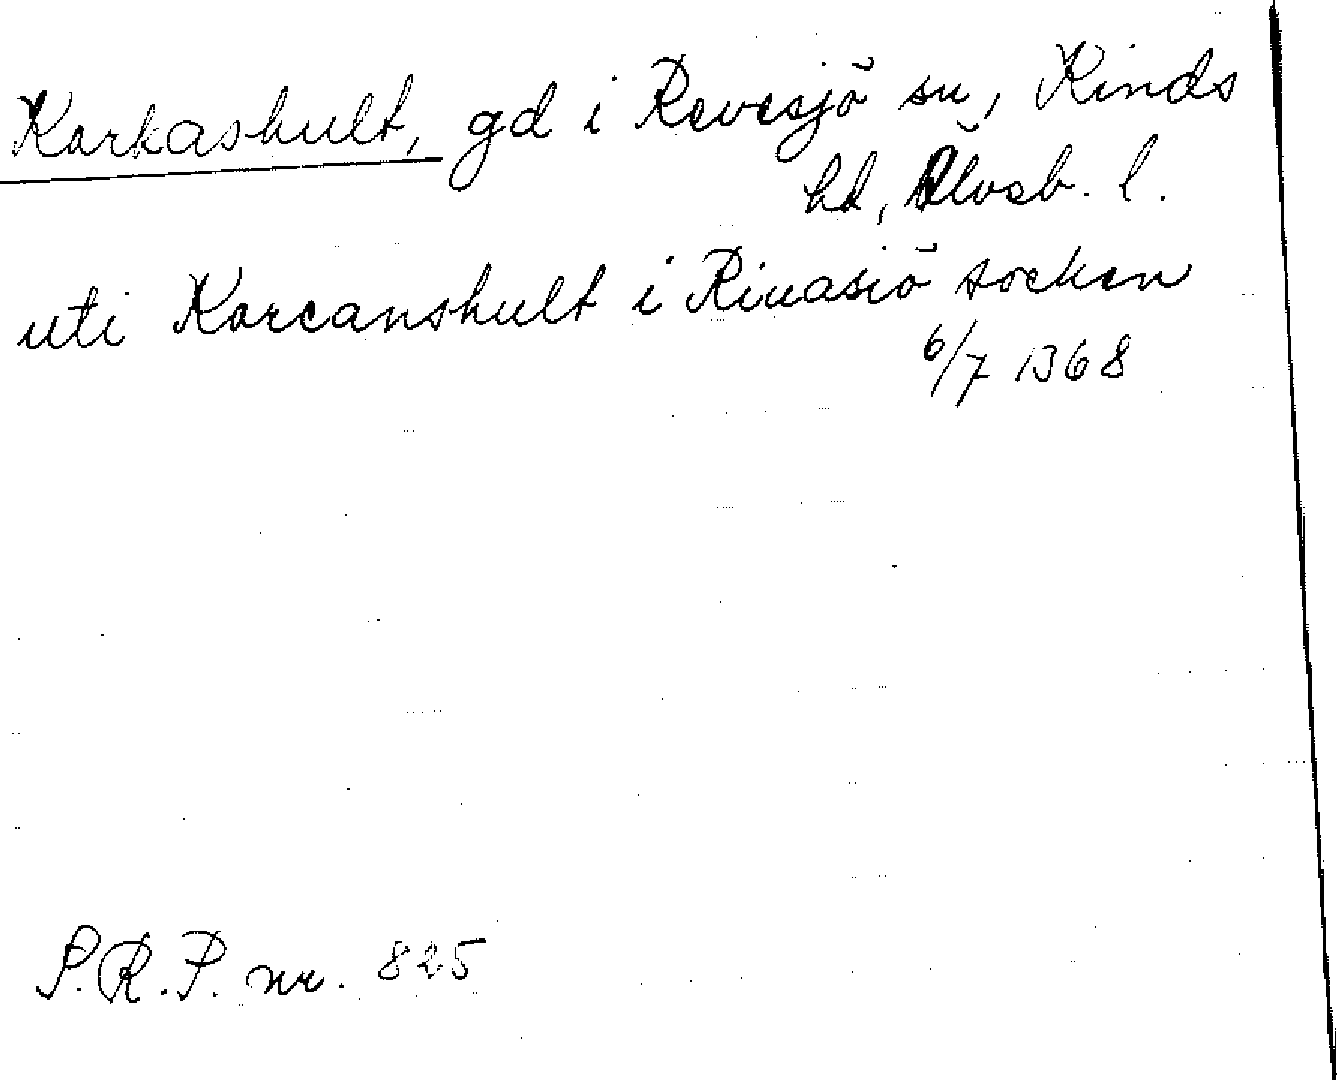 Korkashult, gd i Revesjö sn, Kinds
hd, Älvsb. l.
uti Korcanshult i Riuasiö socken
6/7 1368
S.R.P. nr. 825